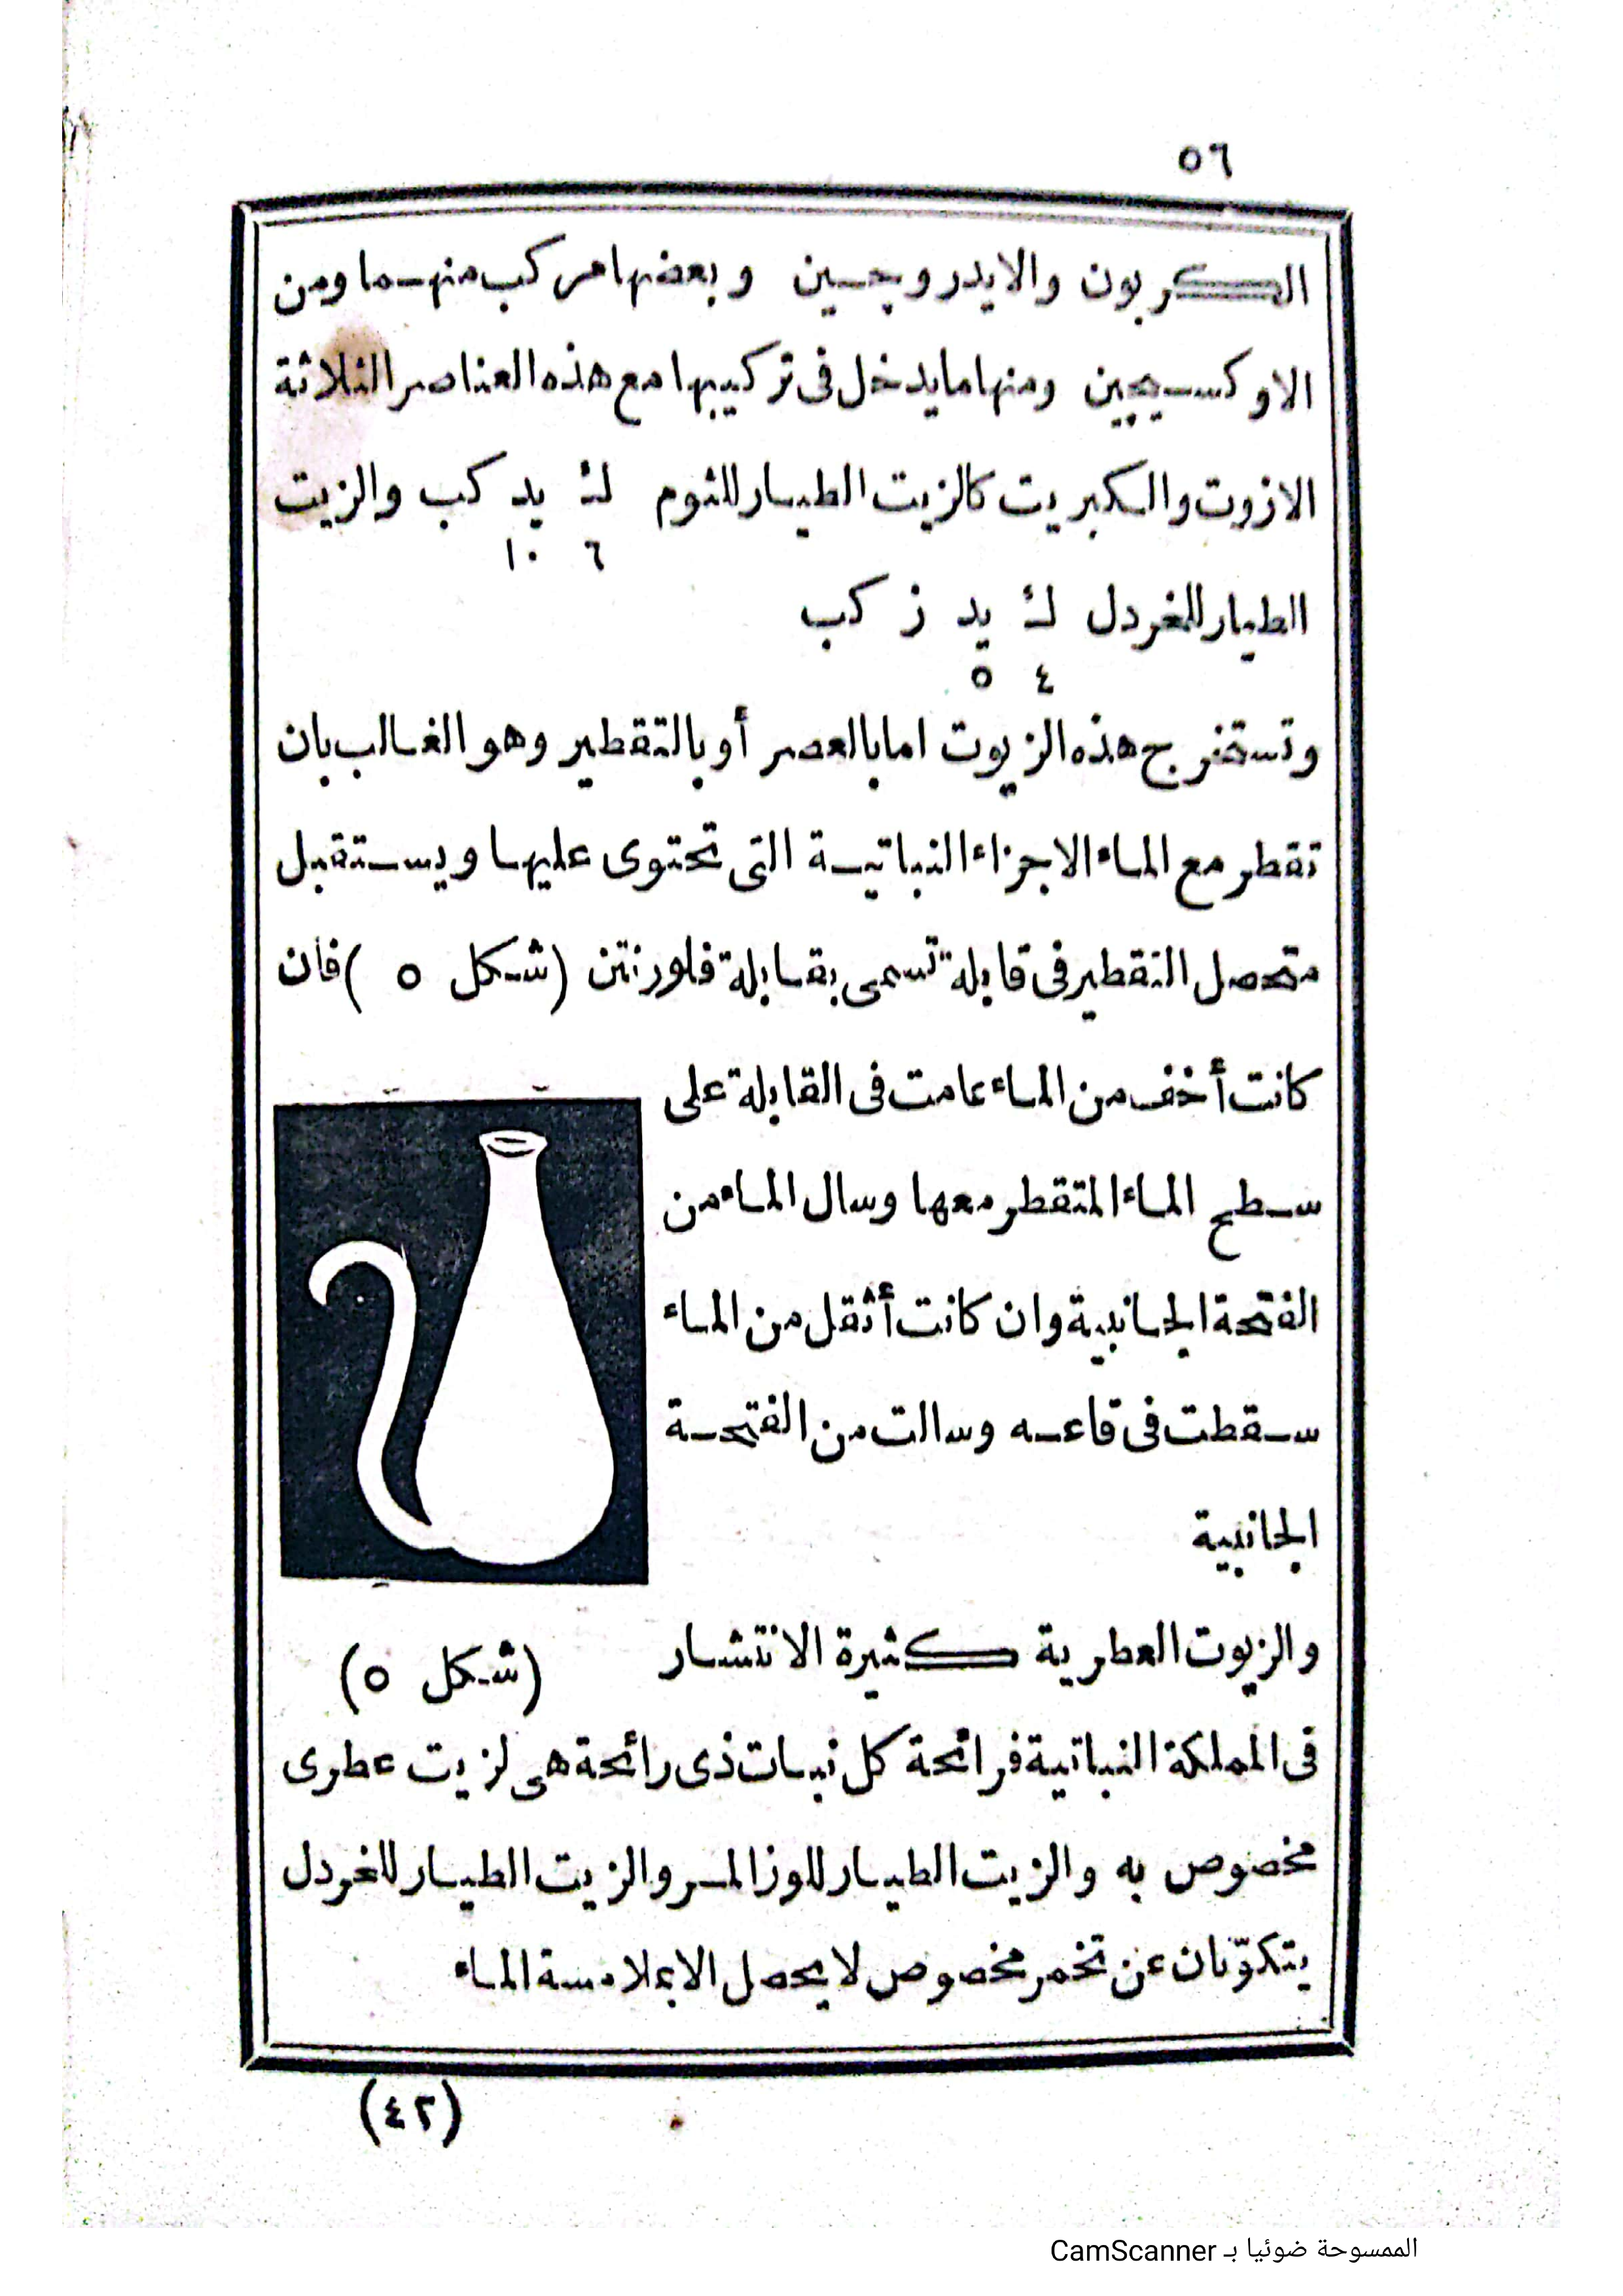 ٥٦
الكربون والايدروچسين وبعضها مركب منهما ومن
الاوكسيچين ومنها مايدخل فى تركيبها مع هذه العناصر الثلاثة
الازوت والكبريت كالزيت الطيار للثوم ك يد كب والزيت
٦ ١٠
الطيار للخردل ك يد ز كب
٤ ٥
وتستخرج هذه الزيوت اما بالعصر أو بالتقطير وهو الغالب بان
تقطر مع الماء الاجزاء النباتية التى تحتوى عليها ويستقبل
متحصل التقطير فى قابلة تسمى بقابلة فلورنتن (شكل ٥ ) فان
كانت أخف من الماء عامت فى القابلة على
سطح الماء المتقطر معها وسال الماء من
الفتحة الجانبية وان كانت أثقل من الماء
سقطت فى قاعه وسالت من الفتحة
الجانبية
والزيوت العطرية كثيرة الانتشار
(شكل ٥)
فى المملكة النباتية فرائحة كل نبات ذى رائحة هى لزيت عطرى
مخصوص به والزيت الطيار للوز المر والزيت الطيار للخردل
يتكوّنان عن تخمر مخصوص لا يحصل الا بملامسة الماء
(٤٢)
الممسوحة ضوئيا بـ CamScanner